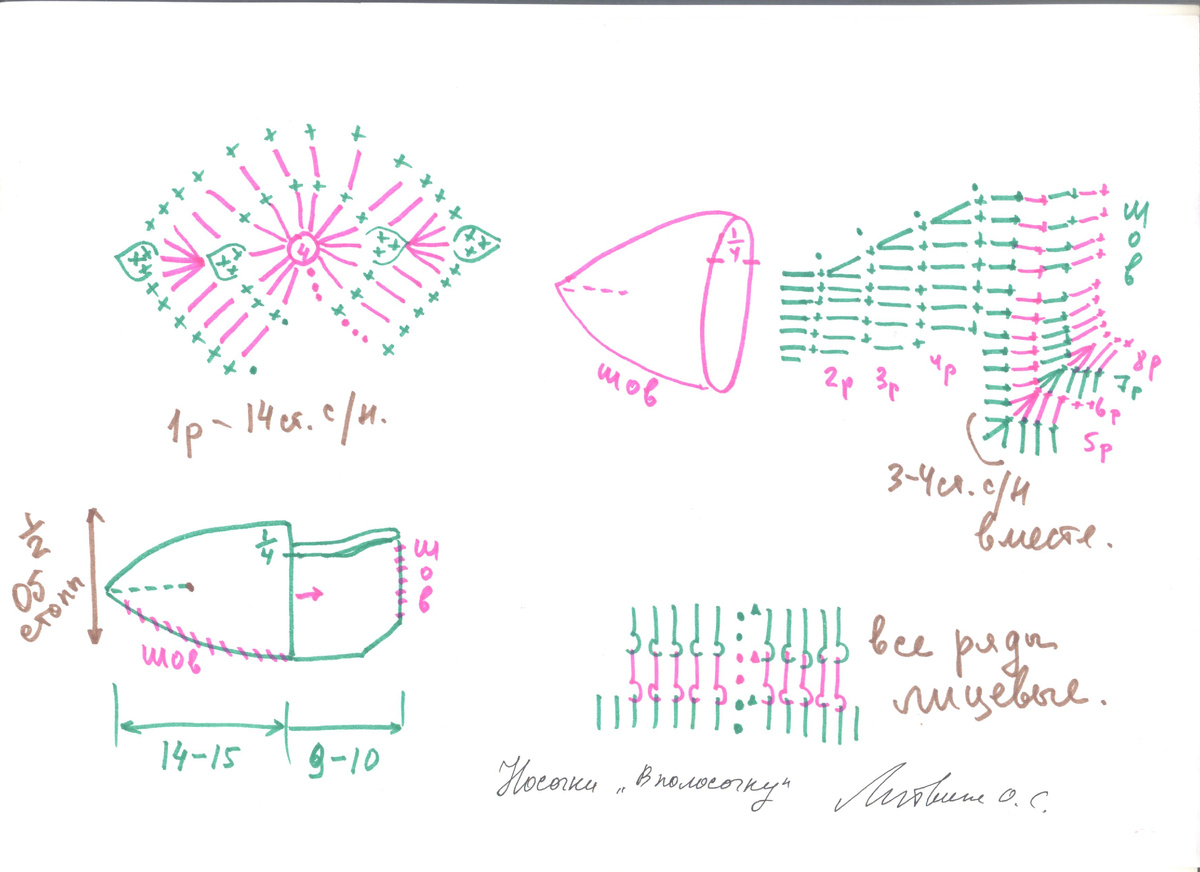 4
1р - 14 ст. с/н.
1/4
шов
2р
3р
4р
5р
6р
7р
8р
шов
3-4 ст. с/н
вместе.
1/2
ОБ
стопы
1/4
шов
шов
14-15
9-10
все ряды
лицевые.
Носочки „В полосочку"
О. С.